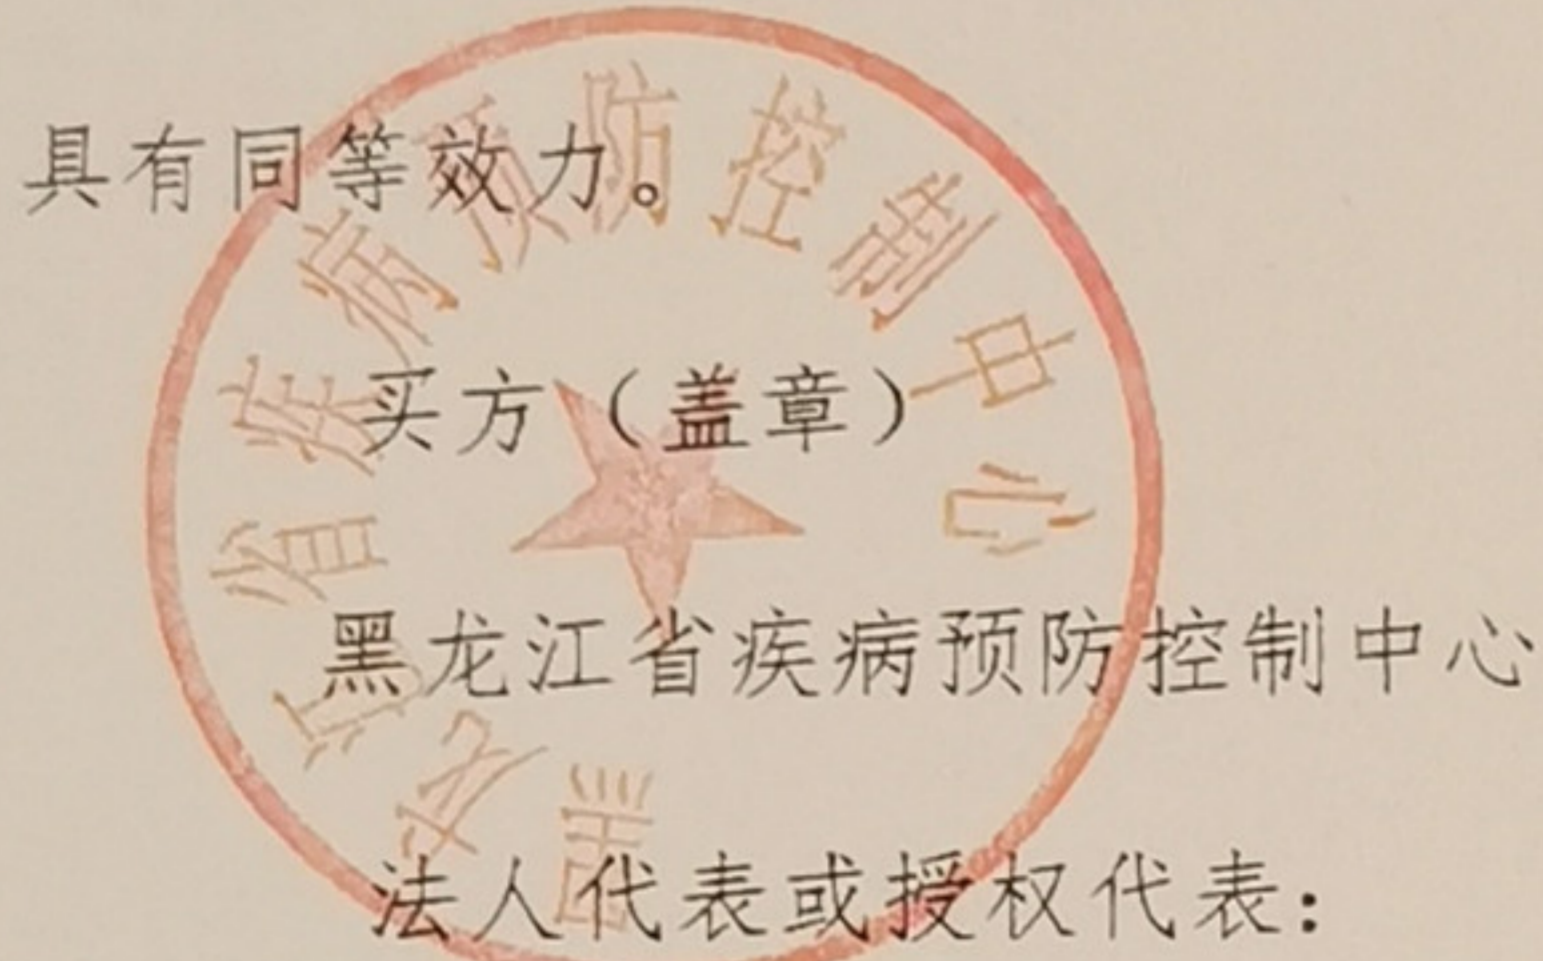 具有同等效力。
买方（盖章）
黑龙江省疾病预防控制中心
法人代表或授权代表：
黑龙江省疾病预防控制中心